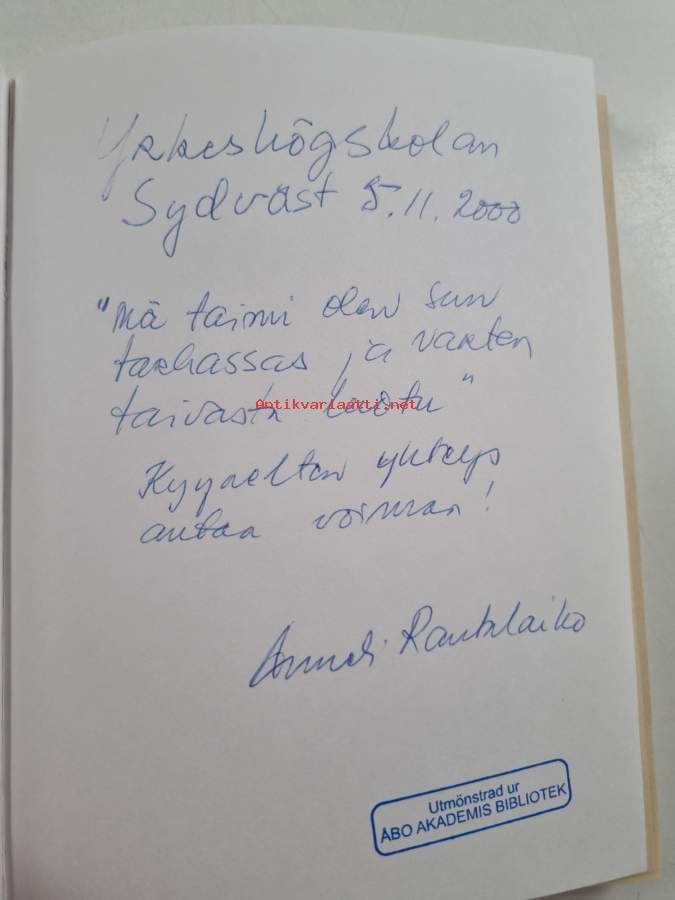 Yrkeshögskolan
Sydväst 5.11.2000
"Mä taimi olen sun
tarhassas ja varten
taivasta luotu"
Antikvariaatti.net
Kyynelten yhteys
antaa voiman!
Rautalaiko
Utmönstrad ur
ÅBO AKADEMIS BIBLIOTEK